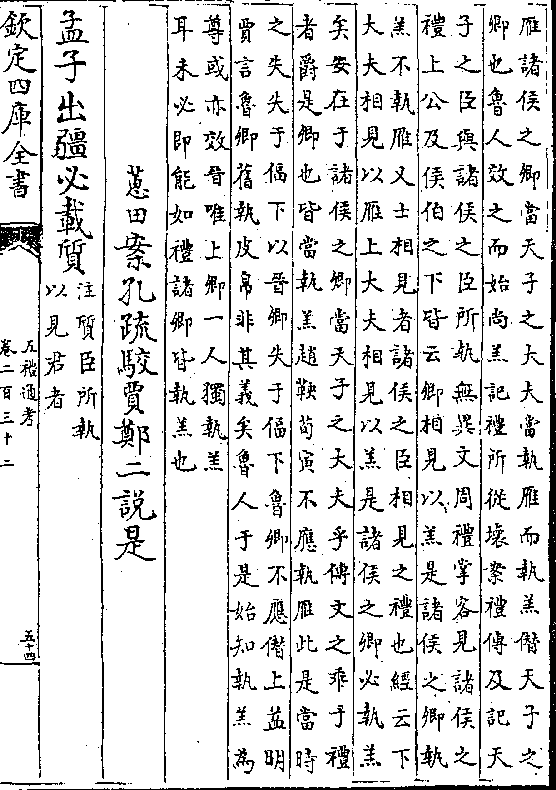 雁諸侯之卿當天子之大夫當執雁而執羔僭天子之
卿也魯人效之而始尚羔記禮所從壞案禮傳及記天
子之臣與諸侯之臣所執無異文周禮掌客見諸侯之
禮上公及侯伯之下皆云卿相見以羔是諸侯之卿執
羔不執雁又士相見者諸侯之臣相見之禮也經云下
大夫相見以雁上大夫相見以羔是諸侯之卿必執羔
矣安在于諸侯之卿當天子之大夫乎傳文之乖于禮
者爵是卿也皆當執羔趙鞅荀寅不應執雁此是當時
之失失于偪下以晉卿失于偪下魯卿不應僭上益明
賈言魯卿舊執皮帛非其義矣魯人于是始知執羔為
尊或亦效晉唯上卿一人獨執羔
耳未必即能如禮諸卿皆執羔也
蕙田案孔疏駮賈鄭二說是
孟子出疆必載質
注質臣所執
以見君者
欽定四庫全書
五禮通考
卷二百三十二
五十四